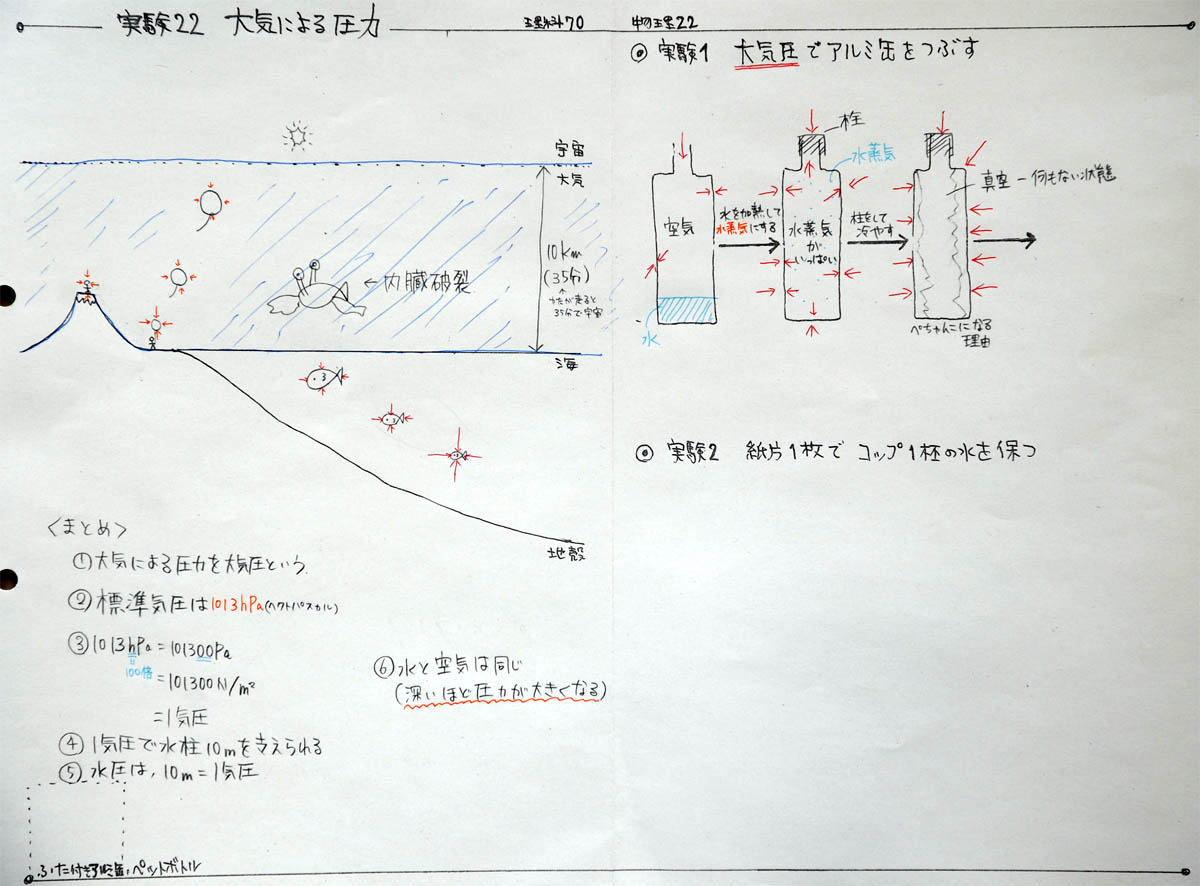 実験22 大気による圧力
理科70
物理22
宇宙
大気
10km
(35分)
35分で宇宙
←内臓破裂
海
地殻
<まとめ>
①大気による圧力を大気圧という.
②標準気圧は1013hPa(ヘクトパスカル)
③1013hPa=101300Pa
100倍
=101300N/m²
=1気圧
④1気圧で水柱10mを支えられる
⑤水圧は,10m=1気圧
⑥水と空気は同じ
(深いほど圧力が大きくなる)
ふた付きアルミ缶,ペットボトル
◎ 実験1 大気圧でアルミ缶をつぶす
栓
水蒸気
空気
水
水を加熱して
水蒸気にする
水蒸気
が
いっぱい
栓をして
冷やす
真空ー何もない状態
ぺちゃんこになる
理由
◎ 実験2 紙片1枚でコップ1杯の水を保つ